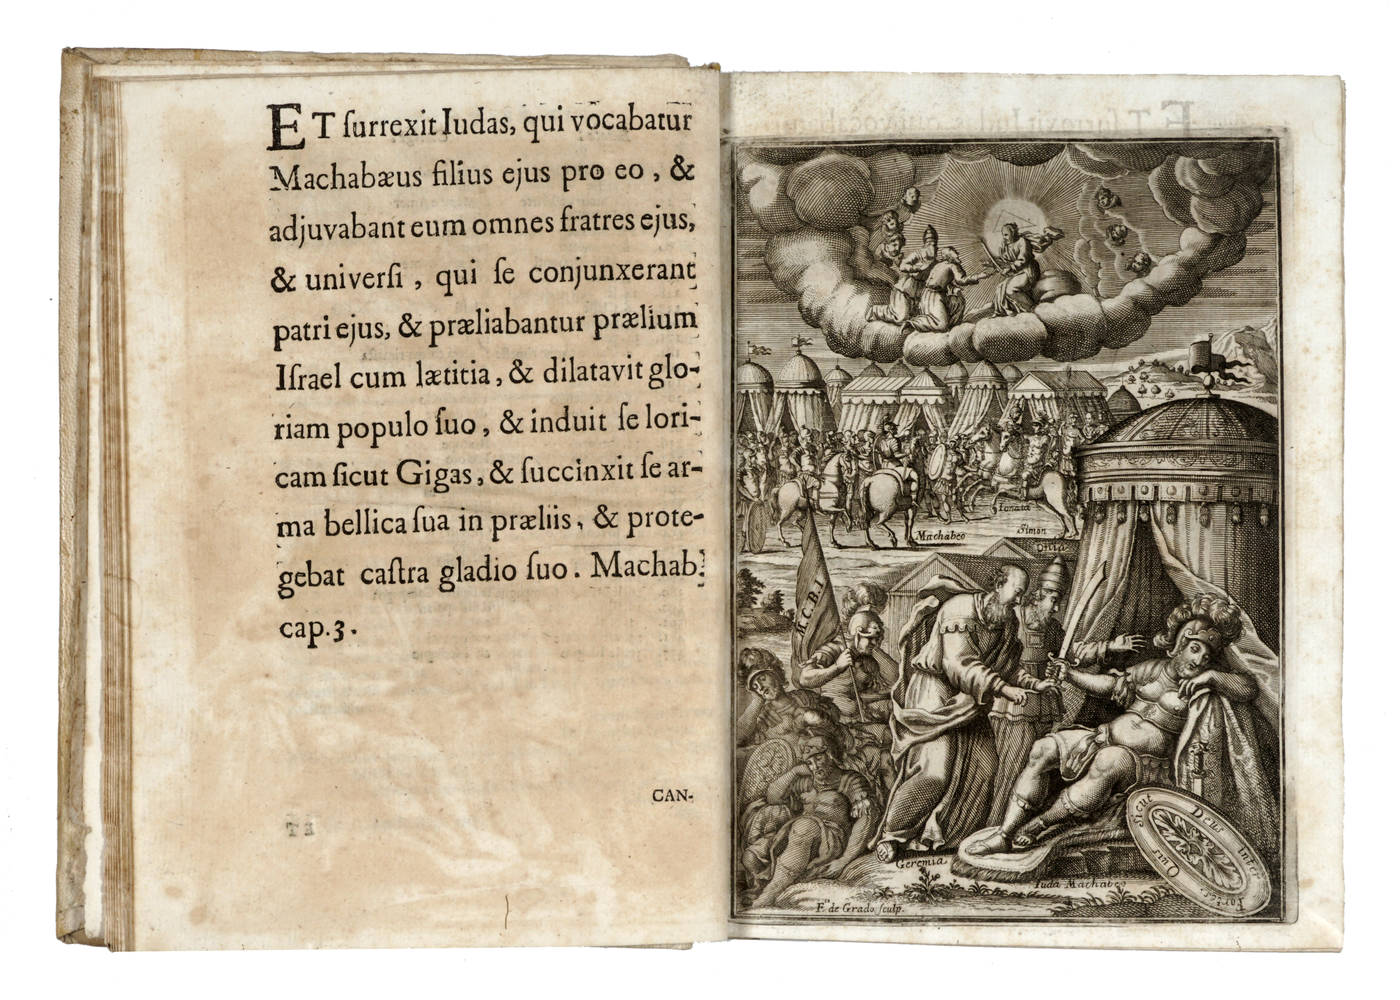 ET ſurrexit Iudas, qui vocabatur
Machabæus filius ejus pro eo, &
adjuvabant eum omnes fratres ejus,
& univerſi, qui ſe conjunxerant
patri ejus, & præliabantur prælium
Iſrael cum lætitia, & dilatavit glo-
riam populo ſuo, & induit ſe lori-
cam ſicut Gigas, & ſuccinxit ſe ar-
ma bellica ſua in præliis, & prote-
gebat caſtra gladio ſuo. Machab.
cap.3.
CAN-
Ionata
Machabeo
Simon
Onia
M.C.B.I
Quis sicut Deus inter Fortes.
Geremia
Iuda Machabeo
F.us de Grado ſculp.